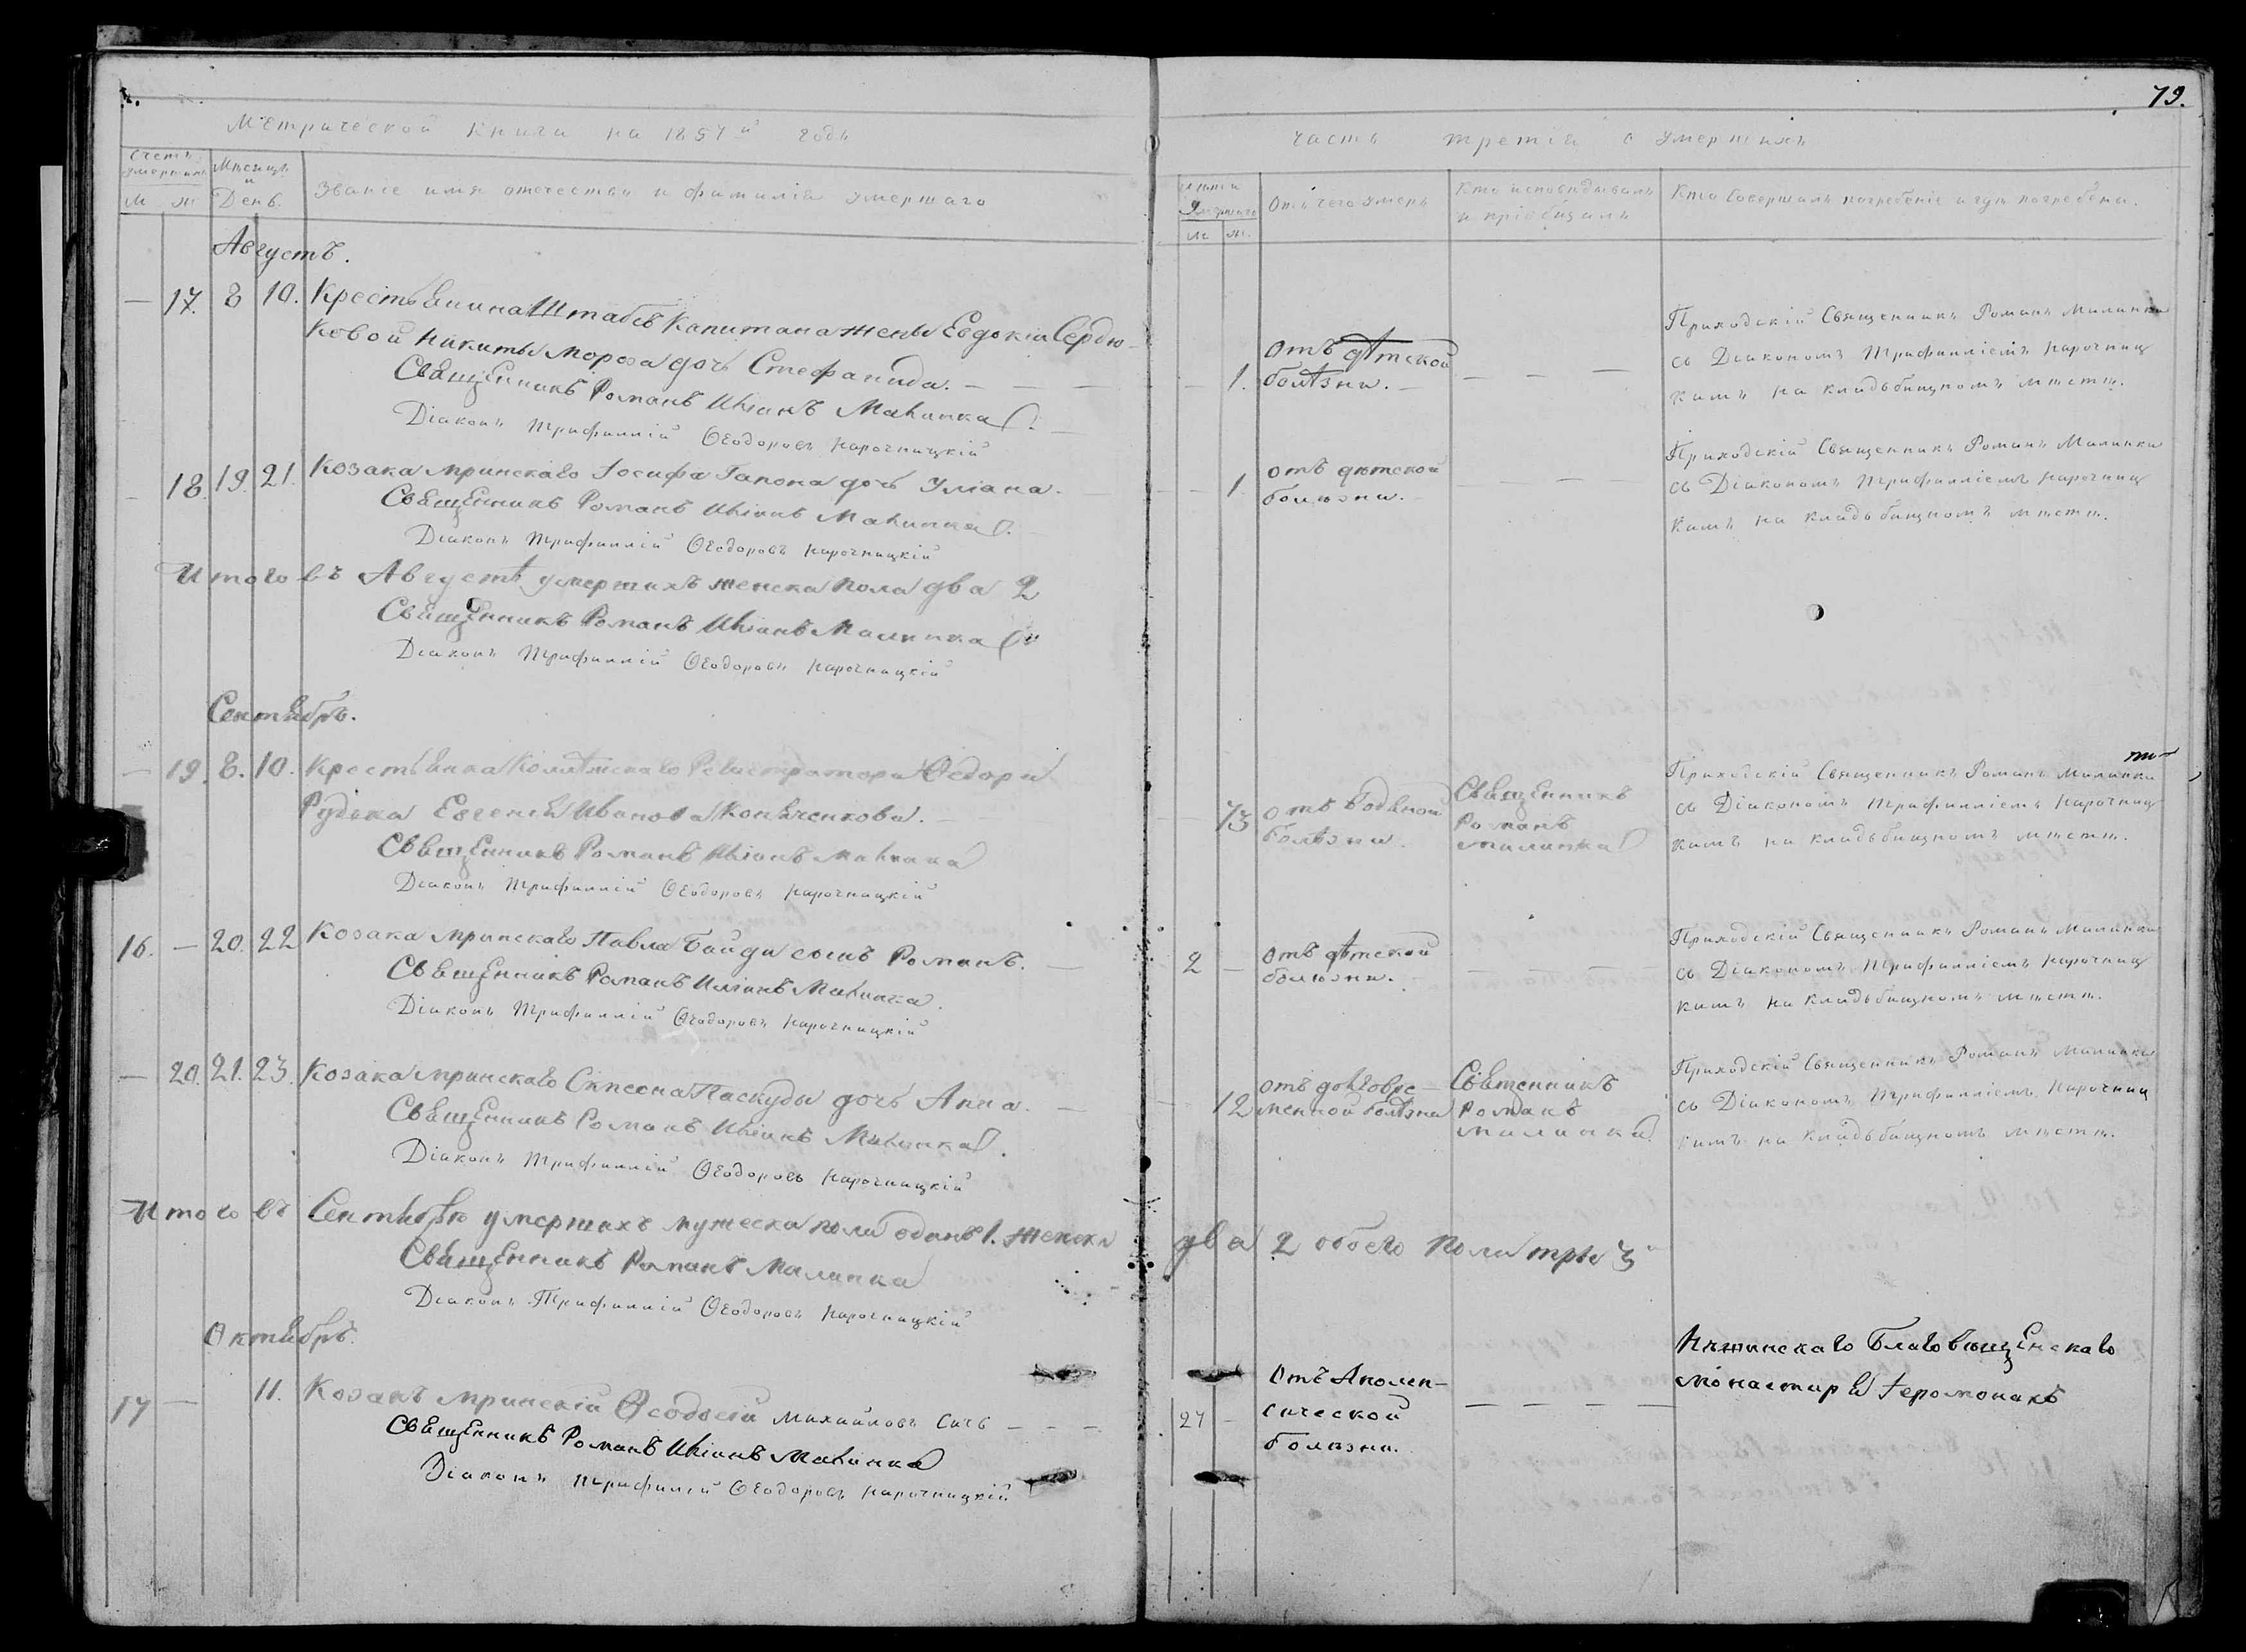 79.
Метрической книги на 1857й годъ
часть третія о умершихъ
Счетъ умершихъ
Мѣсяцъ и День.
Званіе имя отечество и фамилія умершаго
М Ж
Лѣта умершаго
м ж.
Отъ чего умеръ
Кто исповѣдывалъ и пріобщалъ
Кто совершалъ погребеніе и гдѣ погребены.
Августъ.
— 17. 8 10. Крестьянина Штабсъ Капитана жены Евдокіи Сердю-
ковой Никиты Мороза дочь Стефанида. — — —
Священникъ Романъ Иліинъ Малинка
Діаконъ Трифиллій Ѳеодоровъ Нарочницкій
1. Отъ дѣтской
болѣзни. — — — —
Приходскій Священникъ Романъ Малинка
съ Діакономъ Трифилліемъ Нарочниц
кимъ на кладьбищномъ мѣстѣ.
18. 19. 21. Козака мринскаго Іосифа Гапона дочь Уліана.
Священникъ Романъ Иліинъ Малинка
Діаконъ Трифиллій Ѳеодоровъ Нарочницкій
1 отъ дѣтской
болѣзни. — — —
Приходскій Священникъ Романъ Малинка
съ Діакономъ Трифилліемъ Нарочниц
кимъ на кладьбищномъ мѣстѣ.
Итого въ Августѣ умершихъ женска пола два 2
Священникъ Романъ Иліинъ Малинка
Діаконъ Трифиллій Ѳеодоровъ Нарочницкій
Сентябрь.
— 19. 8. 10. Крестьянка Колѣжскаго Регистратора Ѳедора
Рудька Евгенія Иванова
Священникъ Романъ Иліинъ Малинка
Діаконъ Трифиллій Ѳеодоровъ Нарочницкій
73 отъ водяной
болѣзни.
Священникъ
Романъ
Малинка
Приходскій Священникъ Романъ Малинка
съ Діакономъ Трифилліемъ Нарочниц
кимъ на кладьбищномъ мѣстѣ.
16. — 20. 22 Козака мринскаго Павла Байды сынъ Романъ. —
Священникъ Романъ Иліинъ Малинка.
Діаконъ Трифиллій Ѳеодоровъ Нарочницкій
2 — отъ дѣтской
болѣзни. — — —
Приходскій Священникъ Романъ Малинка
съ Діакономъ Трифилліемъ Нарочниц
кимъ на кладьбищномъ мѣстѣ.
— 20. 21. 23. Козака мринскаго Паскуды дочь Анна. —
Священникъ Романъ Иліинъ Малинка.
Діаконъ Трифиллій Ѳеодоровъ Нарочницкій
12 отъ долговре-
менной болѣзни
Священникъ
Романъ
Малинка
Приходскій Священникъ Романъ Малинка
съ Діакономъ Трифилліемъ Нарочниц
кимъ на кладьбищномъ мѣстѣ.
Итого въ Сентябрѣ умершихъ мужеска пола одинъ 1. женска два 2 обоего пола три 3
Священникъ Романъ Малинка
Діаконъ Трифиллій Ѳеодоровъ Нарочницкій
Октябрь.
17 — 11. Козакъ мринскій Ѳеодосій Михайловъ Сичь — — —
Священникъ Романъ Иліинъ Малинка
Діаконъ Трифилій Ѳеодоровъ Нарочницкій
27 — Отъ Аполеп-
сической
болѣзни. — — — —
Нѣжинскаго Благовѣщенскаго
монастыря Іеромонахъ